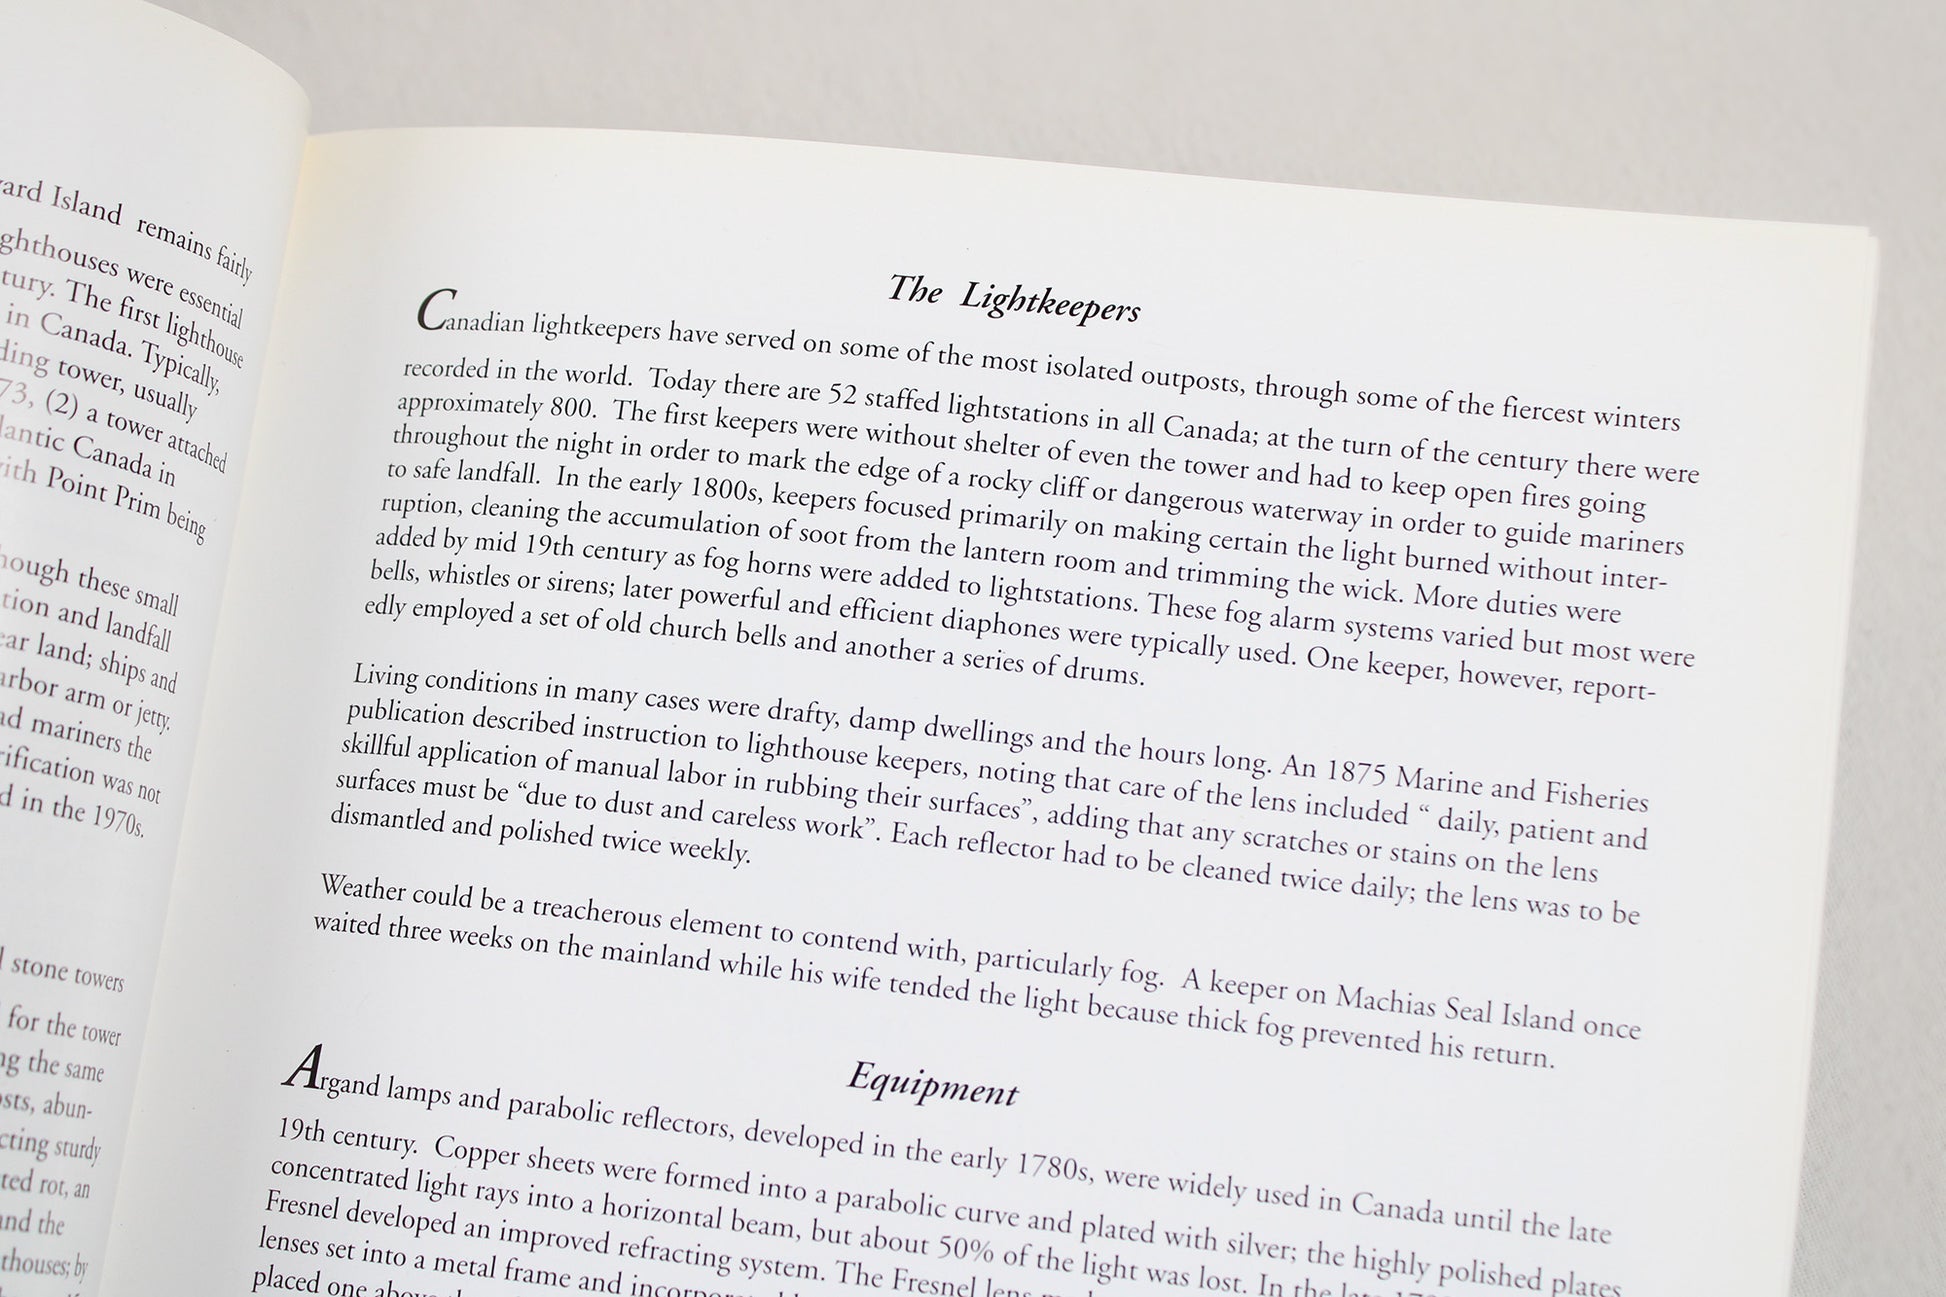 ard Island remains fairly
ghthouses were essential
tury. The first lighthouse
in Canada. Typically,
ding tower, usually
73, (2) a tower attached
lantic Canada in
ith Point Prim being
hough these small
tion and landfall
ear land; ships and
arbor arm or jetty.
ad mariners the
rification was not
d in the 1970s.
l stone towers
for the tower
ng the same
osts, abun-
cting sturdy
ted rot, an
and the
thouses; by
The Lightkeepers
Canadian lightkeepers have served on some of the most isolated outposts, through some of the fiercest winters
recorded in the world. Today there are 52 staffed lightstations in all Canada; at the turn of the century there were
approximately 800. The first keepers were without shelter of even the tower and had to keep open fires going
throughout the night in order to mark the edge of a rocky cliff or dangerous waterway in order to guide mariners
to safe landfall. In the early 1800s, keepers focused primarily on making certain the light burned without inter-
ruption, cleaning the accumulation of soot from the lantern room and trimming the wick. More duties were
added by mid 19th century as fog horns were added to lightstations. These fog alarm systems varied but most were
bells, whistles or sirens; later powerful and efficient diaphones were typically used. One keeper, however, report-
edly employed a set of old church bells and another a series of drums.
Living conditions in many cases were drafty, damp dwellings and the hours long. An 1875 Marine and Fisheries
publication described instruction to lighthouse keepers, noting that care of the lens included “ daily, patient and
skillful application of manual labor in rubbing their surfaces”, adding that any scratches or stains on the lens
surfaces must be “due to dust and careless work”. Each reflector had to be cleaned twice daily; the lens was to be
dismantled and polished twice weekly.
Weather could be a treacherous element to contend with, particularly fog. A keeper on Machias Seal Island once
waited three weeks on the mainland while his wife tended the light because thick fog prevented his return.
Equipment
Argand lamps and parabolic reflectors, developed in the early 1780s, were widely used in Canada until the late
19th century. Copper sheets were formed into a parabolic curve and plated with silver; the highly polished plates
concentrated light rays into a horizontal beam, but about 50% of the light was lost. In the late
Fresnel developed an improved refracting system. The Fresnel lens
lenses set into a metal frame and incorporated
placed one above